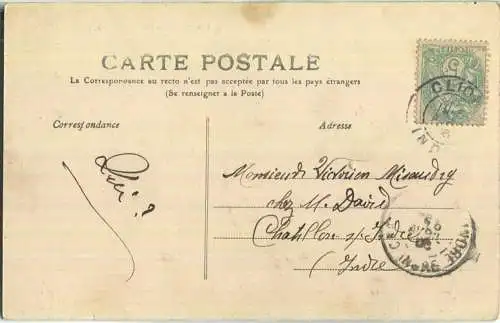 CARTE POSTALE
La Correspondance au recto n'est pas acceptée par tous les pays étrangers
(Se renseigner a la Poste)
Correspondance
Adresse
CLION
5
Monsieur Victorien Misaudry
chez M. David
Chatillon s/ Indre
Indre
INDRE